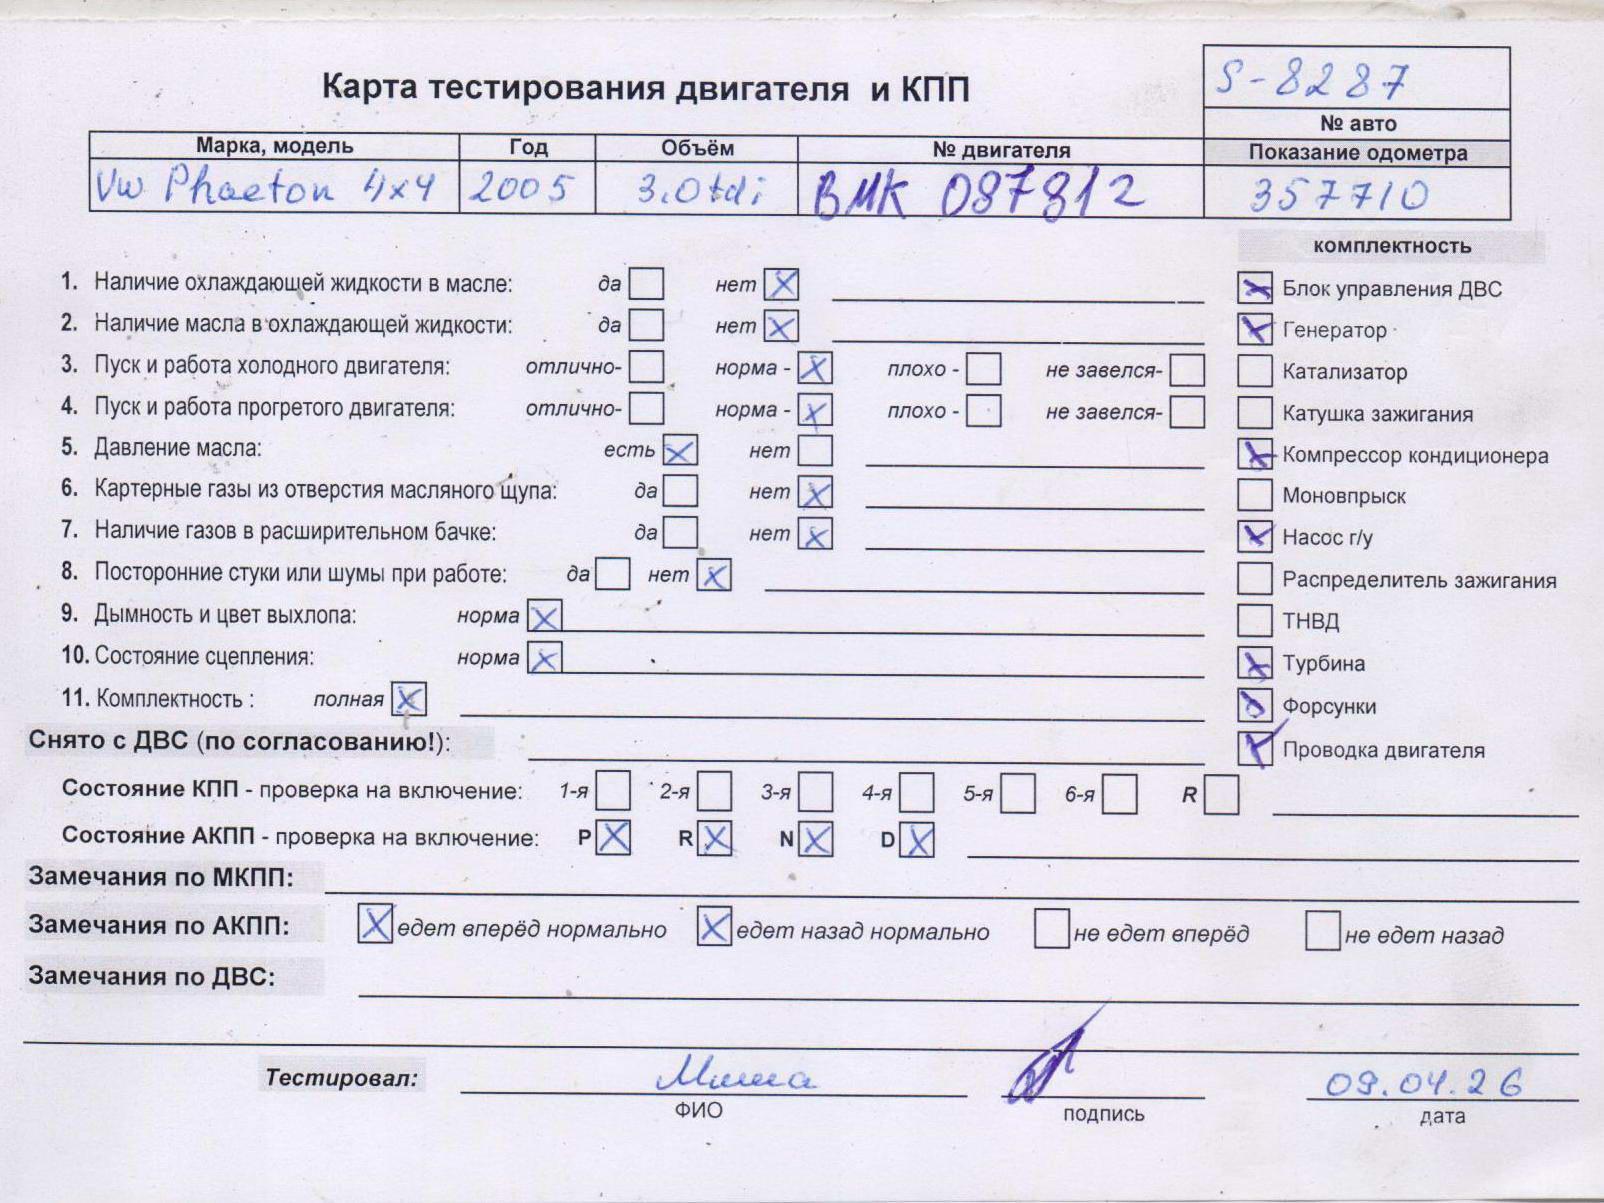 S-8287
Карта тестирования двигателя и КПП
№ авто
Марка, модель Год Объём № двигателя Показание одометра
VW Phaeton 4x4 2005 3.0 tdi BMK 087812 357710
комплектность
1. Наличие охлаждающей жидкости в масле: да нет Х Х Блок управления ДВС
2. Наличие масла в охлаждающей жидкости: да нет Х Х Генератор
3. Пуск и работа холодного двигателя: отлично- норма - Х плохо - не завелся- Катализатор
4. Пуск и работа прогретого двигателя: отлично- норма - Х плохо - не завелся- Катушка зажигания
5. Давление масла: есть Х нет Х Компрессор кондиционера
6. Картерные газы из отверстия масляного щупа: да нет Х Моновпрыск
7. Наличие газов в расширительном бачке: да нет Х Х Насос г/у
8. Посторонние стуки или шумы при работе: да нет Х Распределитель зажигания
9. Дымность и цвет выхлопа: норма Х ТНВД
10. Состояние сцепления: норма Х Х Турбина
11. Комплектность : полная Х Х Форсунки
Снято с ДВС (по согласованию!): Х Проводка двигателя
Состояние КПП - проверка на включение: 1-я 2-я 3-я 4-я 5-я 6-я R
Состояние АКПП - проверка на включение: P Х R Х N Х D Х
Замечания по МКПП:
Замечания по АКПП: Х едет вперёд нормально Х едет назад нормально не едет вперёд не едет назад
Замечания по ДВС:
Тестировал: Миша 09.04.26
ФИО подпись дата